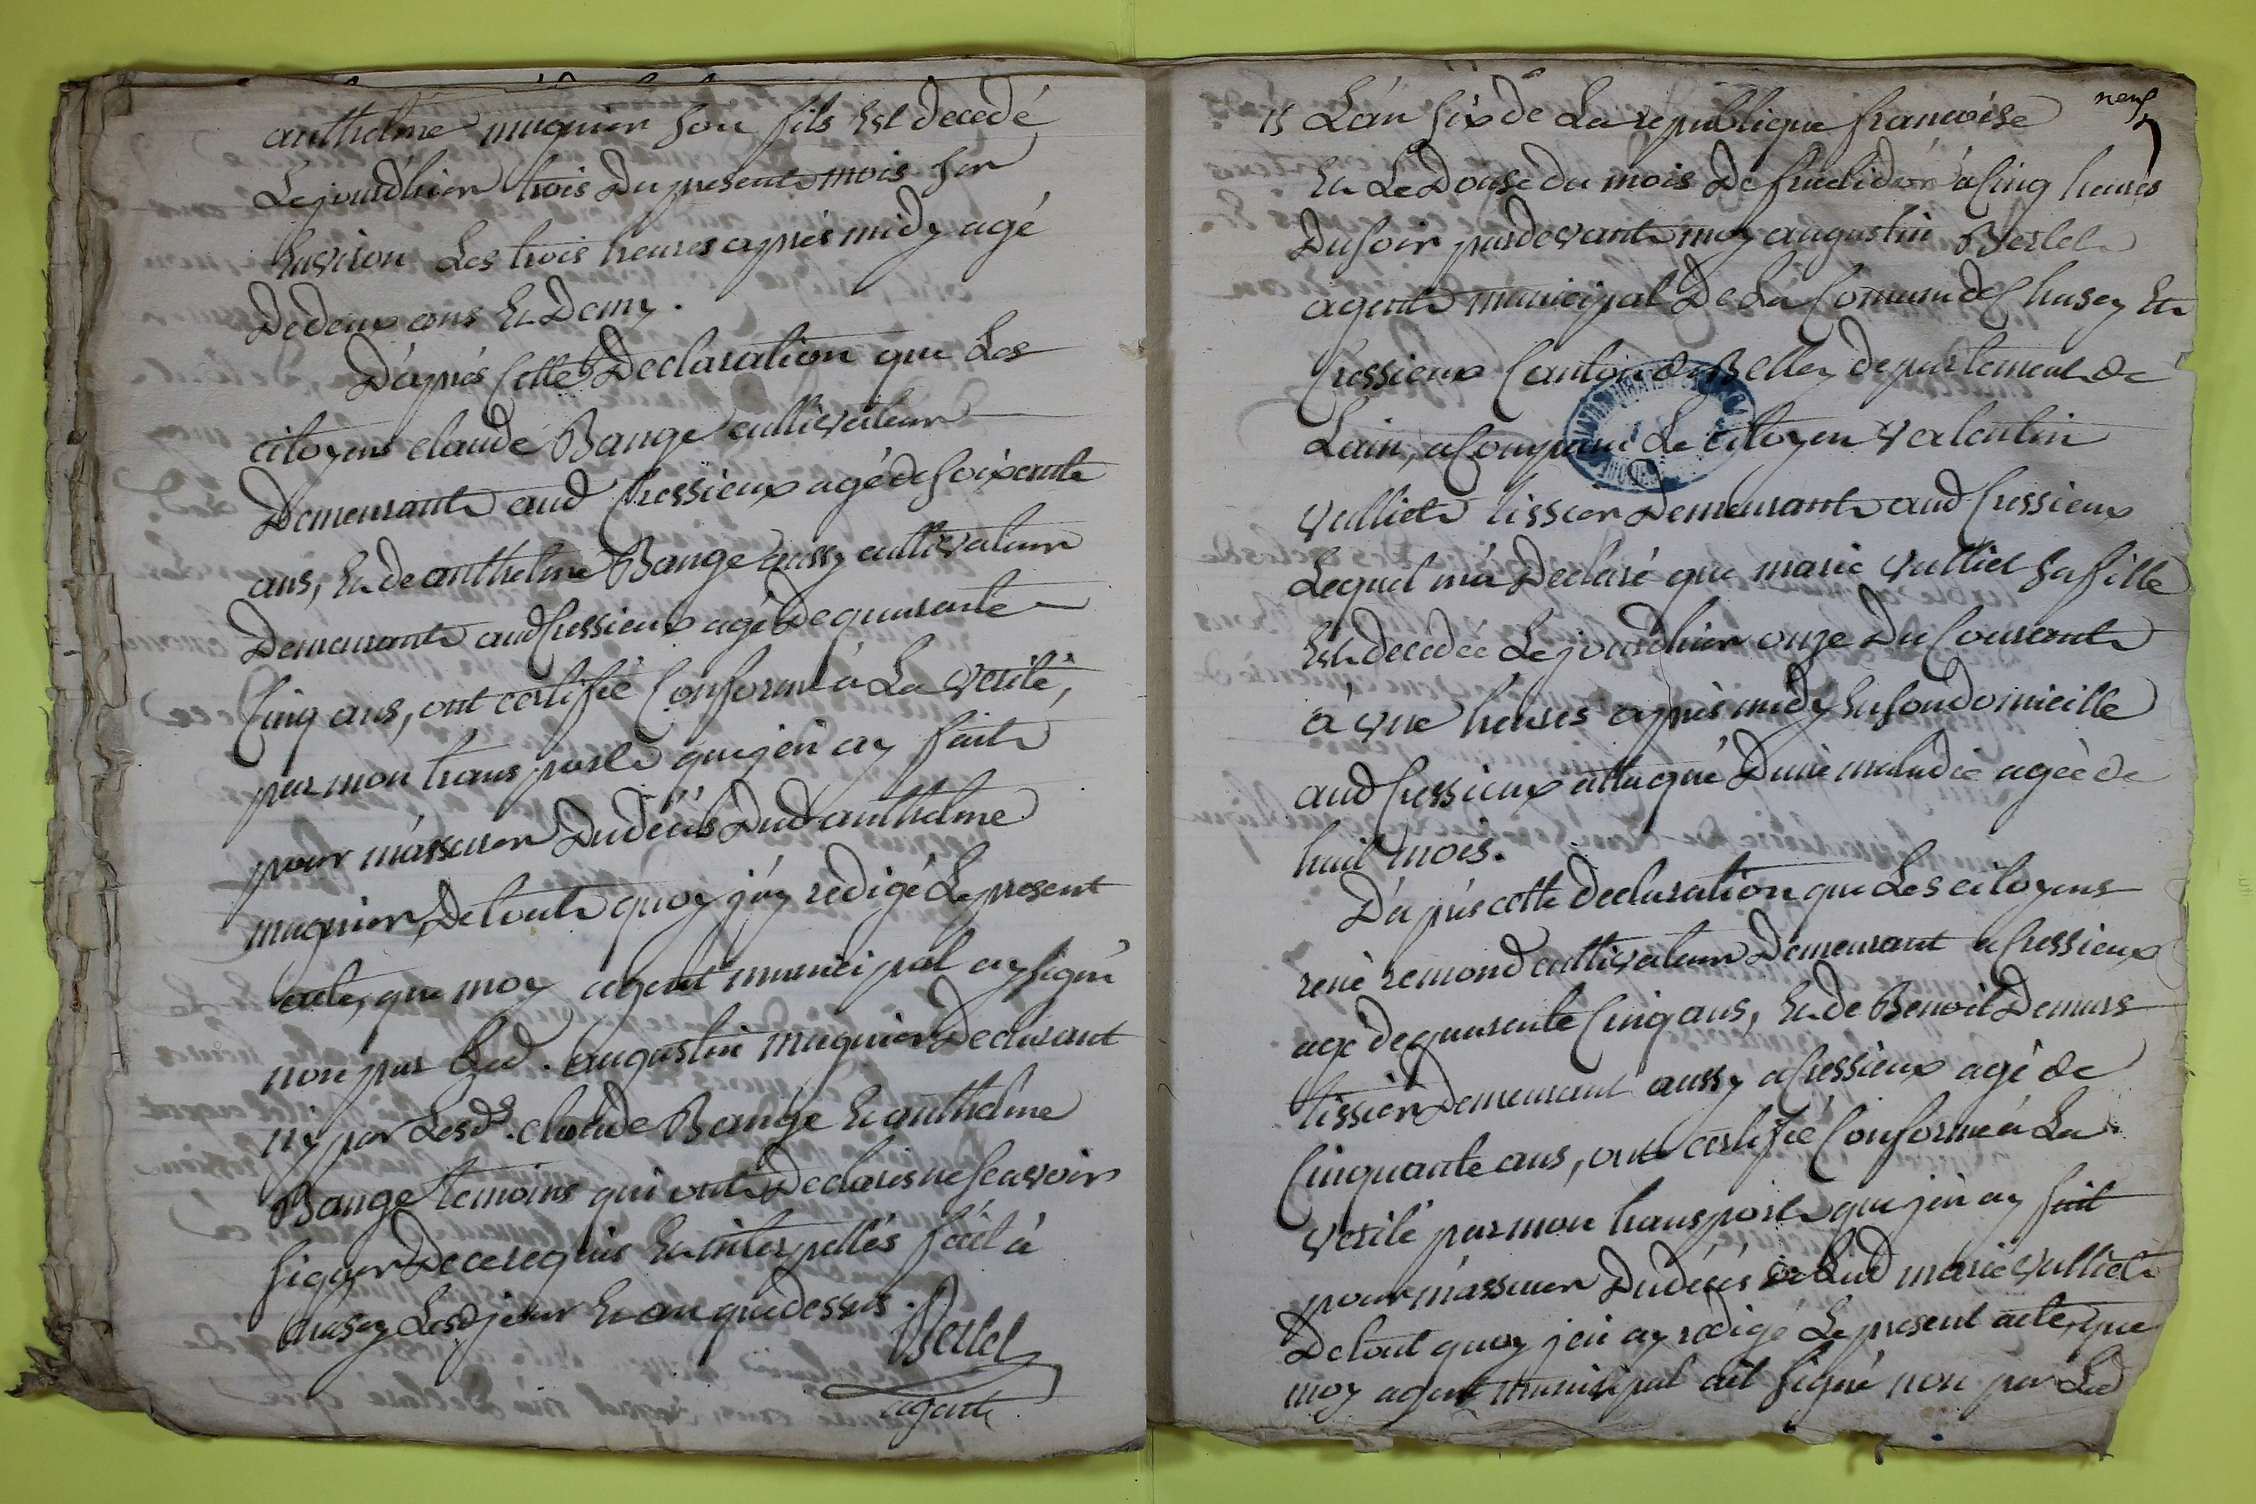 anthelme muquier son fils Est decedé
Le jourdhier trois Du present mois sur
Environ Les trois heures aprés midy agé
De deux ans Et Demy.
D'aprés Cette Declaration que Les
citoyens claude Bange cultivateur
Demeurant aud Cressieux agé de soixante
ans, Et de anthelme Bange aussy cultivateur
Demeurant aud Cressieux agé de quarante
Cinq ans, ont certifié Conforme à La verité,
par mon transporte que j'en ay fait
pour m'assurer Du décés Dud anthelme
muquier, De tout quoy j'ay redigé Le present
acte, que moy agent municipal ay signé
non par Led. augustin muquier Declarant
ny par Lesds. claude Bange Et anthelme
Bange temoins qui ont Declarés ne scavoir
signer De ce requis Et interpellés fait à
Chasey Lesd jour Et an que dessus.
Bertet
agent
15 L'an six de La republique francoise
neuf
Et Le Douse du mois De fructidor à Cinq heures
Du soir pardevant moy augustin Bertet
agent municipal De La Comune de Chasey Et
Cressieux Canton de Belley departement de
Lain, a Comparu Le citoyen valentin
vulliet tissier Demeurant aud Cressieux
Lequel m'a Declaré que marie vulliet sa fille
Est decedée Le jourdhier onze Du Courant
à une heures aprés midy En son domicille
aud Cressieux attaqué D'une maladie agée de
huit mois.
D'aprés cette declaration que Les citoyens
renè remond cultivateur Demeurant a Cressieux
agé de quarente Cinq ans, Et de Benoit Demurs
tissier Demeurant aussy a Cressieux agé de
Cinquante ans, ont certifié Conforme à La
verité par mon transporte que j'en ay fait
pour m'assurer Du décés de Lad marie vulliet
De tout quoy j'en ay redigé Le present acte, que
moy agent municipal ait signé non par Led